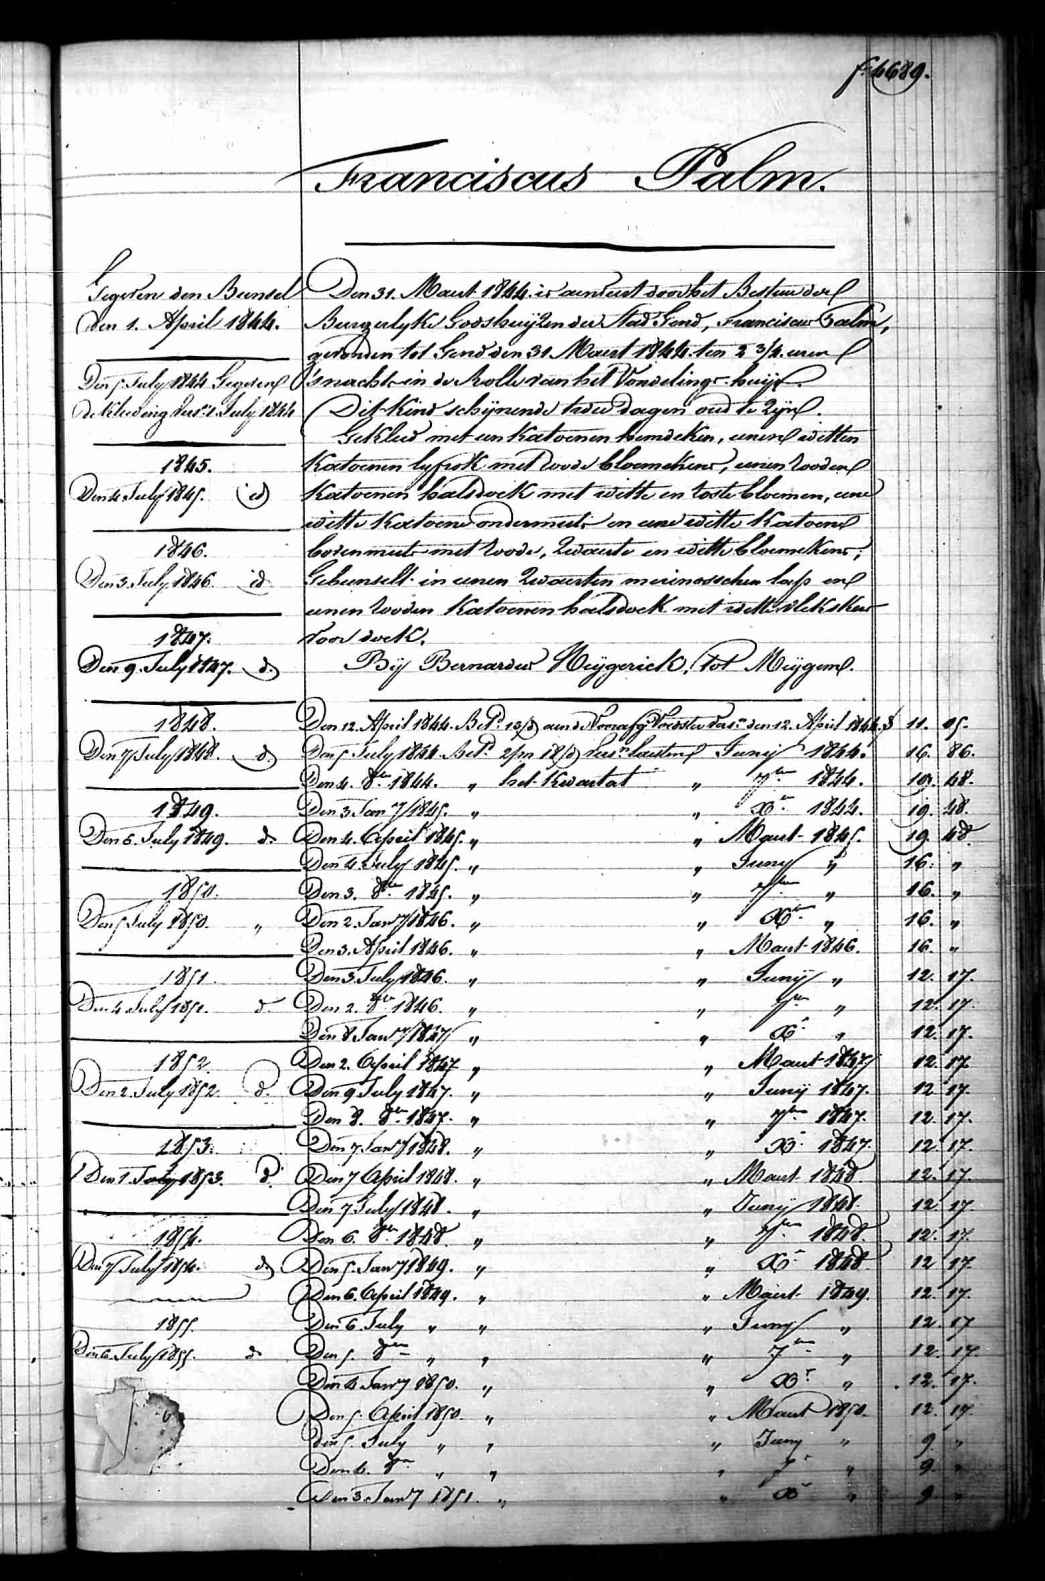 fo 4689.
Franciscus Palm.
Gegeven den Bunsel
den 1. April 1844.
Den 5 July 1844 Gegeven
de kleeding vers. 1. July 1844
1845.
Den 4 July 1845. id
1846.
Den 3. July 1846. id
1847.
Den 9. July 1847. d.
1848.
Den 7 July 1848. d.
1849.
Den 6. July 1849. d.
1850.
Den 5 July 1850. "
1851.
Den 4 July 1851. d.
1852.
Den 2. July 1852. d.
1853.
Den 1. July 1853. d.
1854.
Den 7 July 1854. d
1855.
Den 6. July 1855. d
Den 31. Maart 1844. is aenveert door het Bestuur der
Burgerlyke Godshuijzen der Stad Gend, Franciscus Palm,
gevonden tot Gend den 31 Maert 1844 ten 2 3/4 uren
'snachts in de Rolle van het Vondelings-huijs.
Dit Kind schijnende twee dagen oud te zijn.
Gekleed met een Katoenen hemdeken, eenen witten
Katoenen lyfrok met roode bloemekens, eenen rooden
Katoenen halsdoek met witte en roste bloemen, eene
witte Katoene ondermuts en eene witte Katoene
bovenmuts met roode, zwarte en witte bloemekens;
Gebunselt in eenen zwarten merinosschen lap en
eenen rooden Katoenen halsdoek met witte vlekskens
voor doek.
Bij Bernardus Meijgerick, tot Meijgem.
Den 12. April 1844. Bet. 13/d aen de Voorafg. Voedster vers. den 12. April 1844. 11. 05.
Den 5 July 1844. Bet. vers. Junij 1844. 16. 86.
Den 4. 8er 1844. " het Kwartal " 7ber 1844. 19. 48.
Den 3 Janry 1845. " " Xr 1844. 19. 48.
Den 4. April 1845. " " Maart 1845. 19. 48.
Den 4 July 1845. " " Juny " 16. "
Den 3. 8er 1845. " " 7ber " 16. "
Den 2. Janry 1846. " " Xr " 16. "
Den 3. April 1846. " " Maart 1846. 16. "
Den 3 July 1846. " " Junij " 12. 17.
Den 2. 8er 1846. " " 7er " 12. 17.
Den 8 Janry 1847 " " Xr " 12. 17.
Den 2. April 1847 " " Maart 1847 12. 17.
Den 9 July 1847. " " Junij 1847. 12. 17.
Den 8. 8er 1847. " " 7ber 1847. 12. 17.
Den 7. Janry 1848. " " Xr 1847. 12. 17.
Den 7 April 1848. " " Maart 1848. 12. 17.
Den 7 July 1848. " " Junij 1848. 12. 17.
Den 6. 8er 1848. " " 7ber 1848. 12. 17.
Den 5. Janry 1849. " " Xr 1848. 12. 17.
Den 6. April 1849. " " Maart 1849. 12. 17.
Den 6 July " " " Juny " 12. 17
Den 5. 8er " " " 7ber " 12. 17.
Den 4 Janry 1850. " " Xr " 12. 17.
Den 5. April 1850. " " Maart 1850. 12. 17
den 5. July " " " Juny " 9. "
Den 4. 8er " " " 7r " 9. "
Den 3. Janry 1851. " " Xr " 9 "